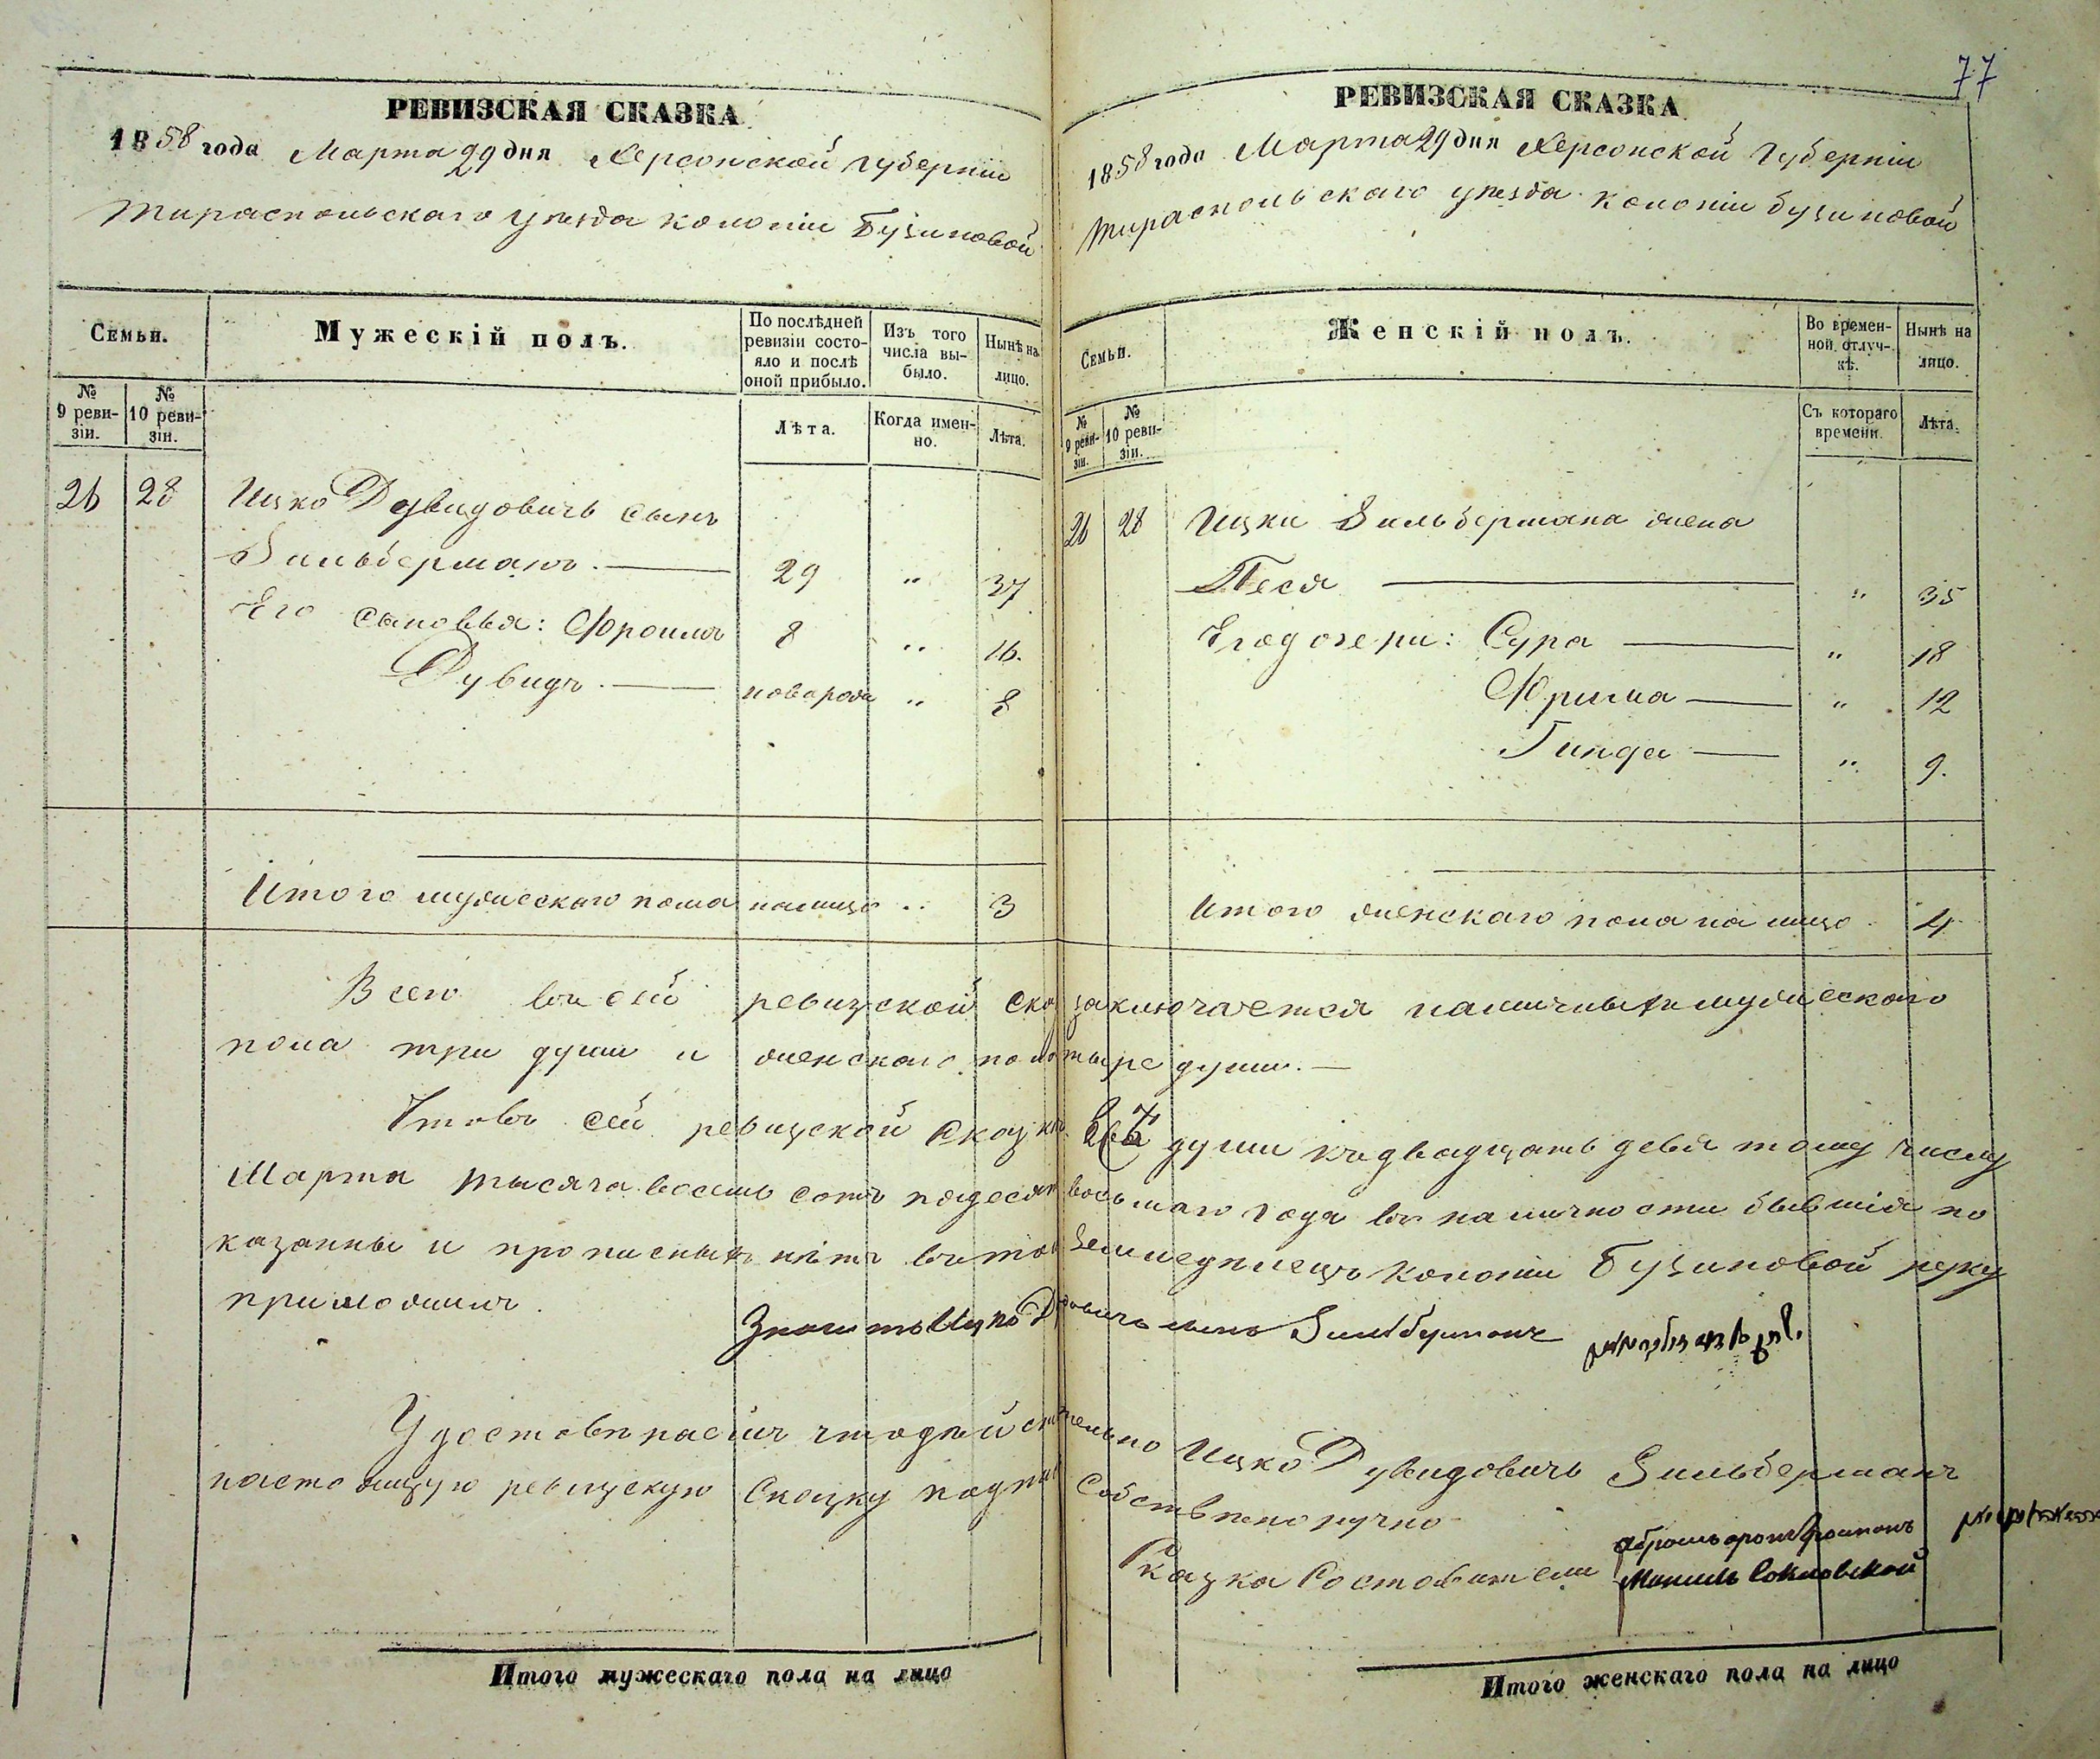 77
РЕВИЗСКАЯ СКАЗКА
1858 года Марта 29 дня Херсонской Губерніи
Тираспольскаго уезда колоніи Бузиновой
Семьи.
Мужескій полъ.
По послѣдней ревизіи состояло и послѣ оной прибыло.
Изъ того числа выбыло.
Нынѣ на лицо.
№ 9 ревизіи.
№ 10 ревизіи.
Лѣта.
Когда именно.
Лѣта.
26 28 Ицко Дувидовичъ сынъ
Зильберманъ. 29 „ 37
Его сыновья: Фроимъ 8 „ 16.
Дувидъ. новорожд „ 8
Итого мужескаго пола налицо .. 3
РЕВИЗСКАЯ СКАЗКА
1858 года Марта 29 дня Херсонской Губерніи
Тираспольскаго уезда колоніи Бузиновой
Семьи.
Женскій полъ.
Во временной отлучкѣ.
Нынѣ на лицо.
№ 9 ревизіи.
№ 10 ревизіи.
Съ котораго времени.
Лѣта.
26 28 Ицки Зильбермана жена
Песя „ 35
Его дочери: Сура „ 18
Фрима „ 12
Гинда „ 9.
Итого женскаго пола на лицо 4
Всего въ сей ревизской ска заключается наличныхъ мужескаго
пола три души и женскаго пола тыре души.
Что въ сей ревизской сказкѣ всѣ души къ двадцать девятому числу
Марта тысяча восемь сотъ пядесят восьмаго года въ наличности бывшія по
казанны и прописныхъ нѣтъ въ том Земледѣлецъ колоніи Бузиновой руку
приложилъ.
Ицко Д довичъ сынъ Зильберманъ
Удостовѣряемъ что дѣйст тельно Ицко Дувидовичъ Зильберманъ
настоящую ревизскую Сказку подпи Собственоручно
Сказка Составители
Маниль Соколовской
Итого мужескаго пола на лицо
Итого женскаго пола на лицо